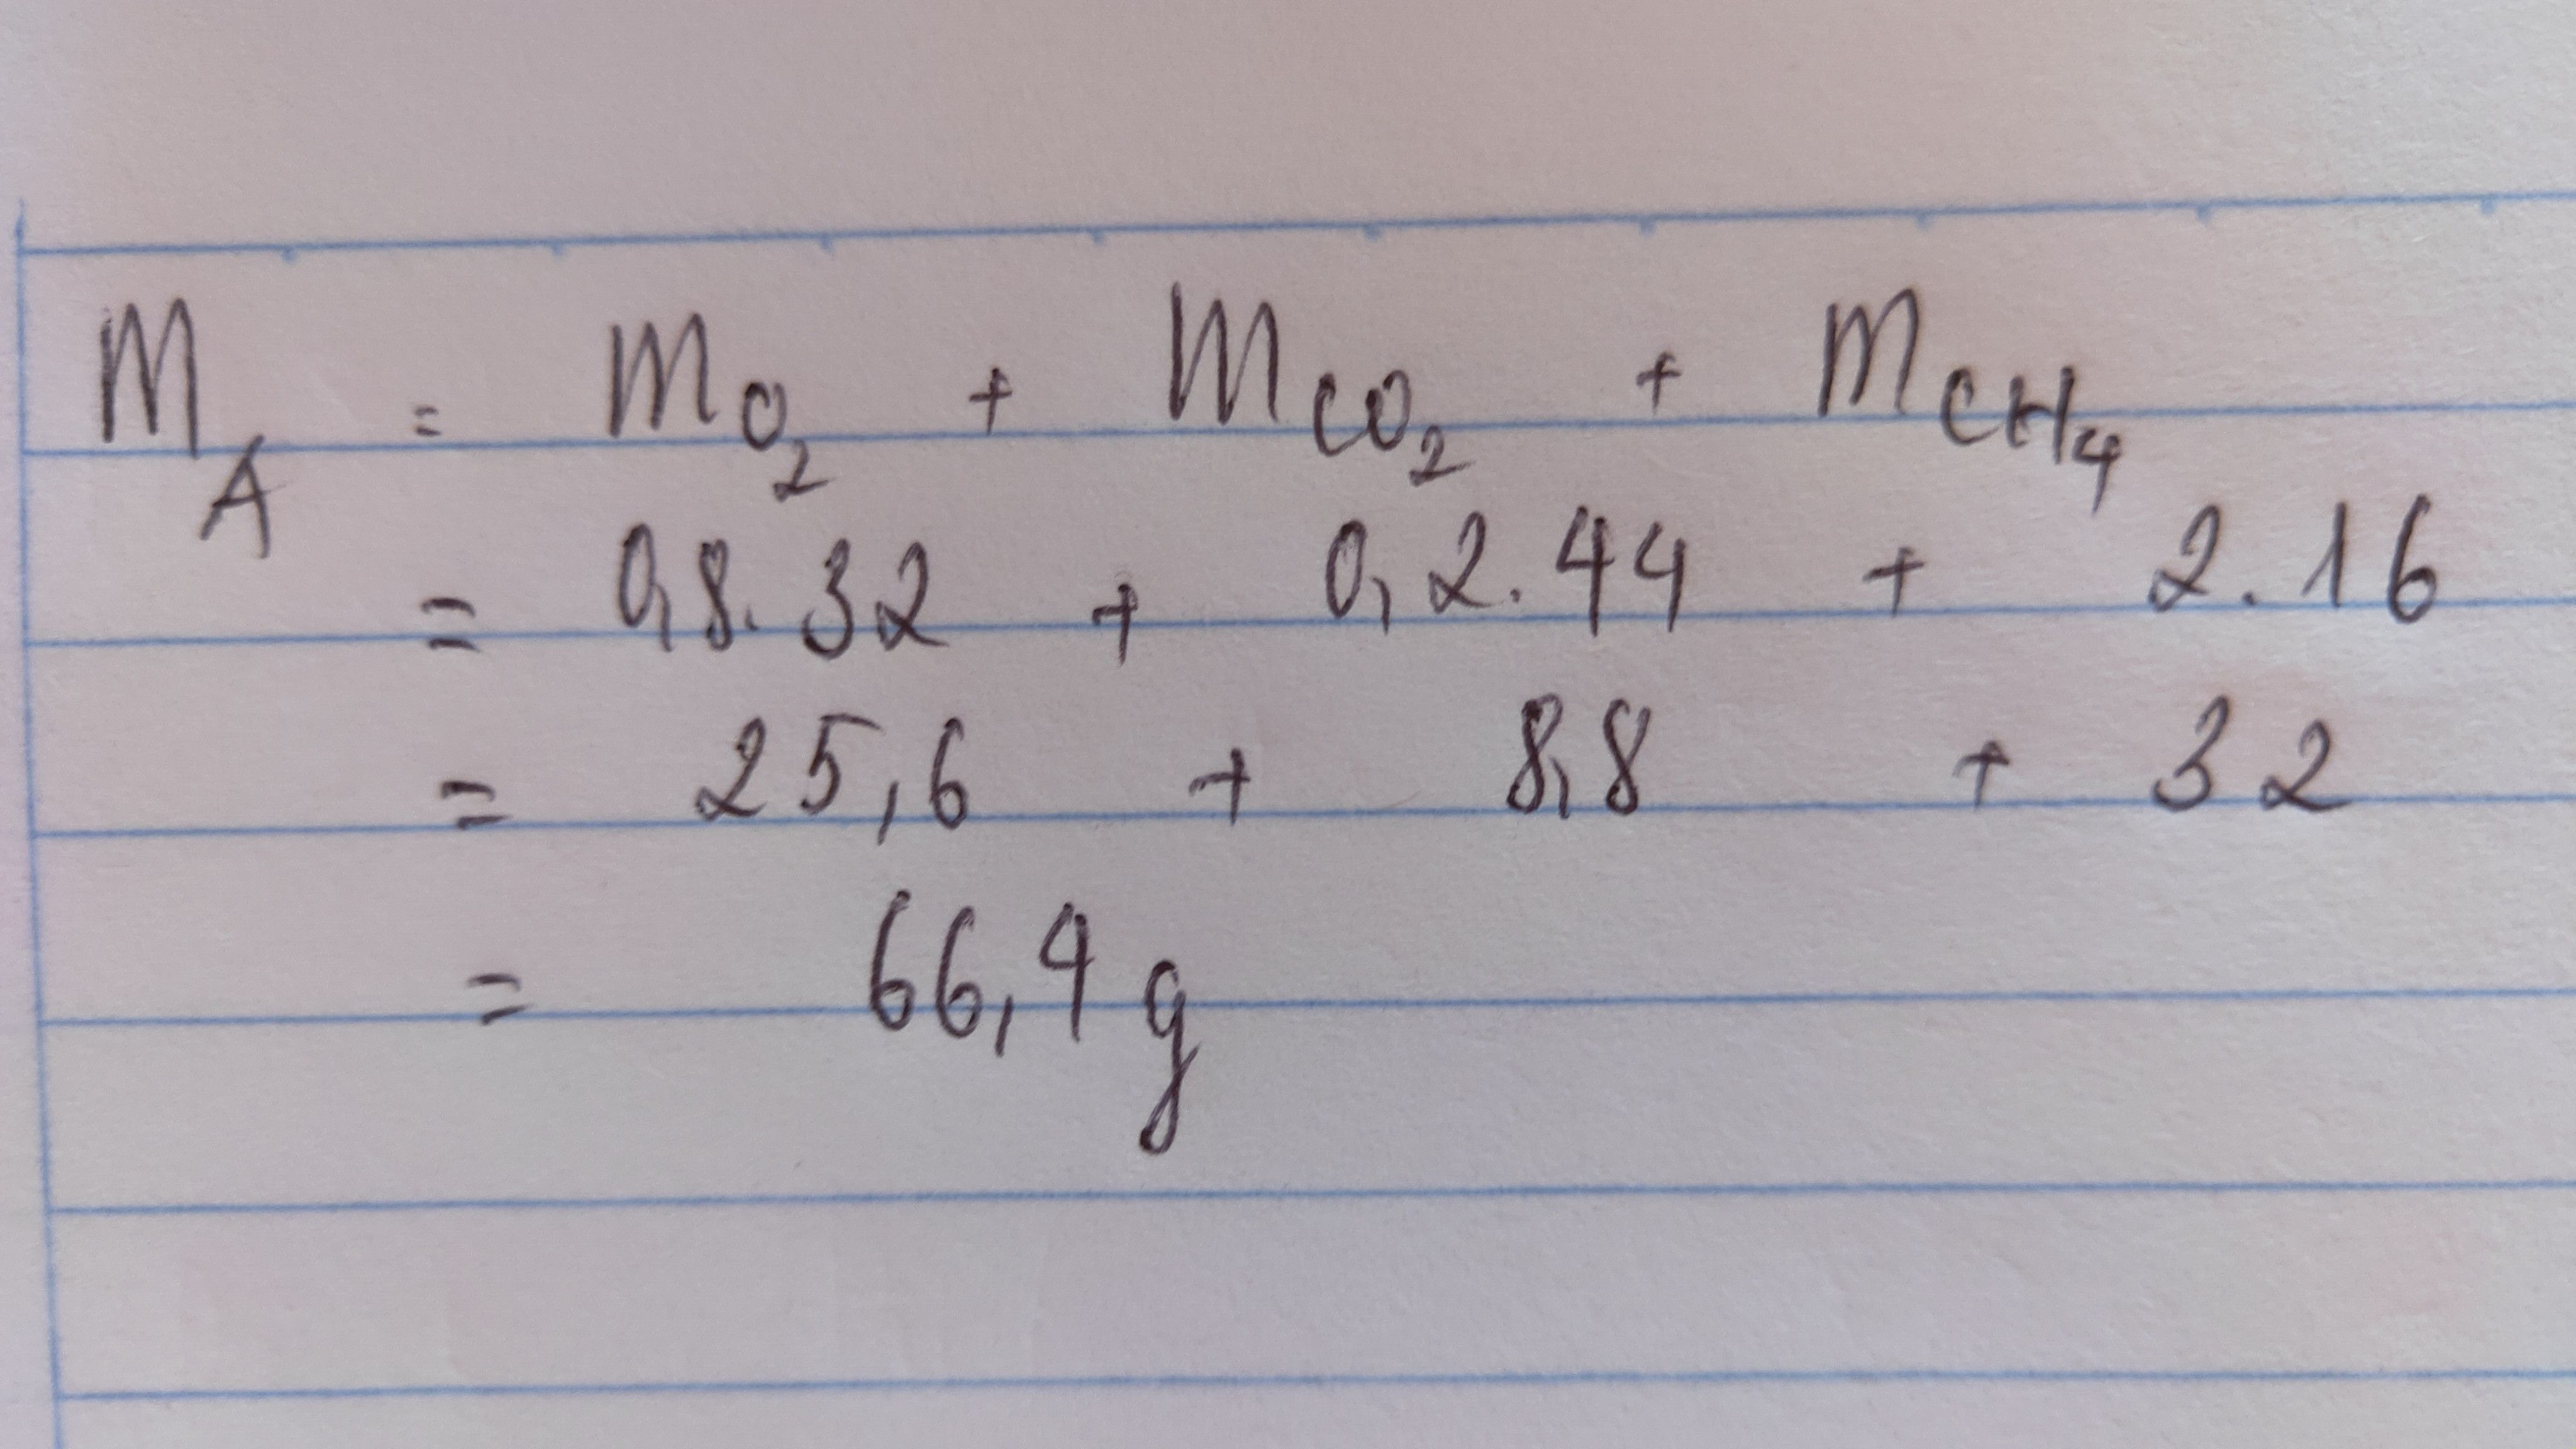 m_A = m_O₂ + m_CO₂ + m_CH₄
= 0,8.32 + 0,2.44 + 2.16
= 25,6 + 8,8 + 32
= 66,4 g